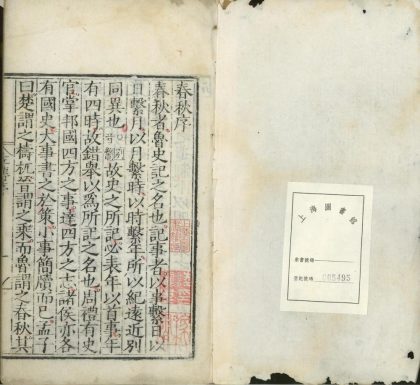 春秋序
春秋者魯史記之名也記事者以事繫日以
日繫月以月繫時以時繫年所以紀遠近別
同異也故史之所記必表年以首事年
有四時故錯舉以爲所記之名也周禮有史
官掌邦國四方之事達四方之志諸侯亦各
有國史大事書之於策小事簡牘而已孟子
曰楚謂之檮杌晉謂之乘而魯謂之春秋其
上海圖書館
索書號碼
登記號碼